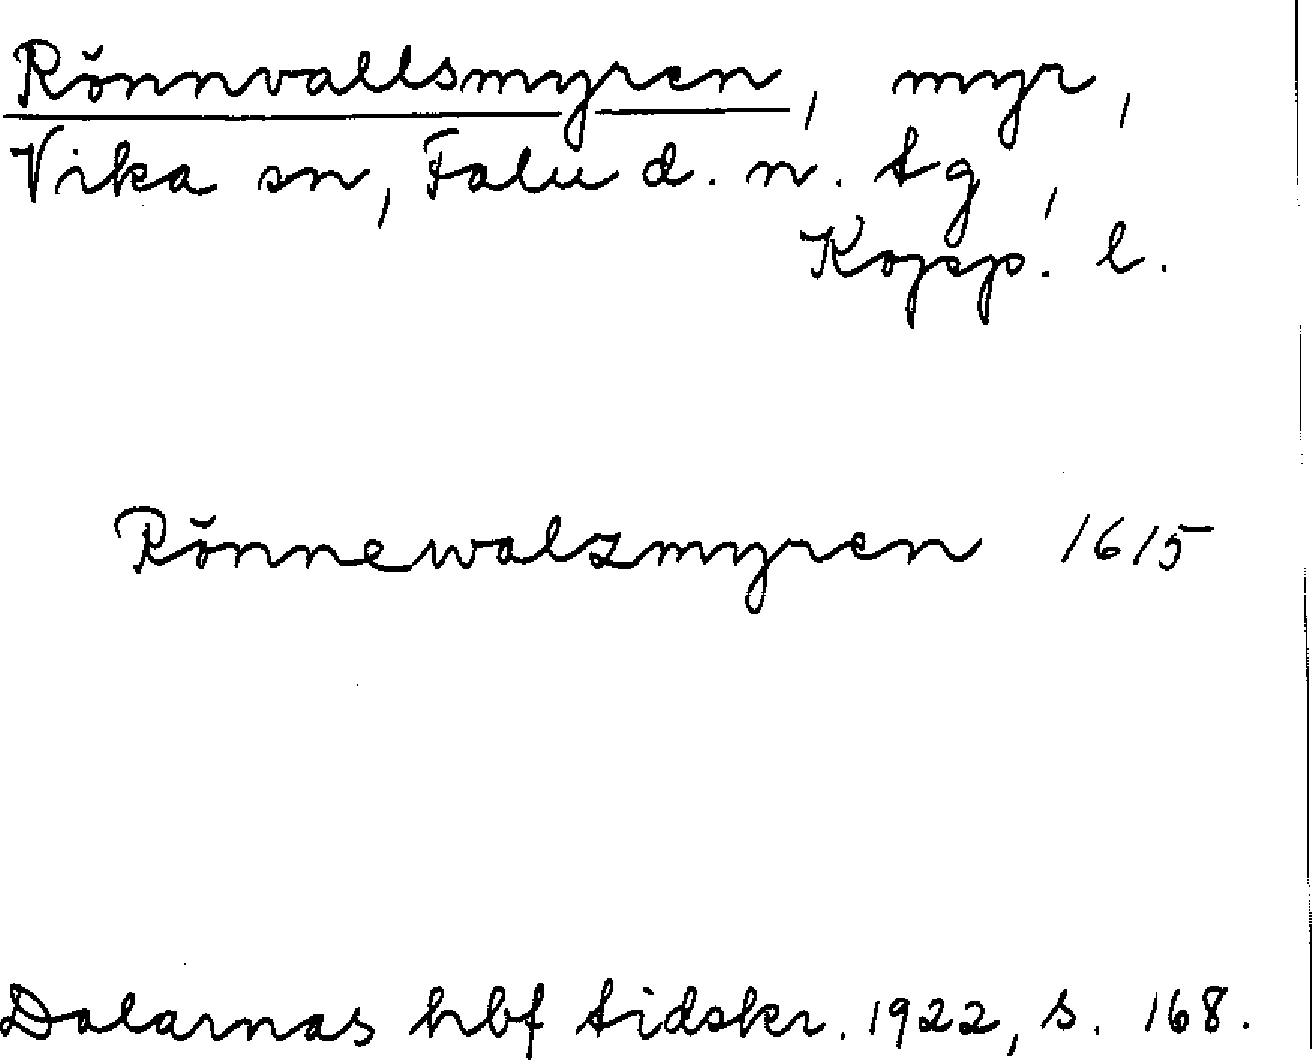 Rönnvallsmyren, myr,
Vika sn, Falu d. n. tg,
Kopp. l.
Rönnewalzmyren 1615
Dalarnas hbf tidskr. 1922, s. 168.